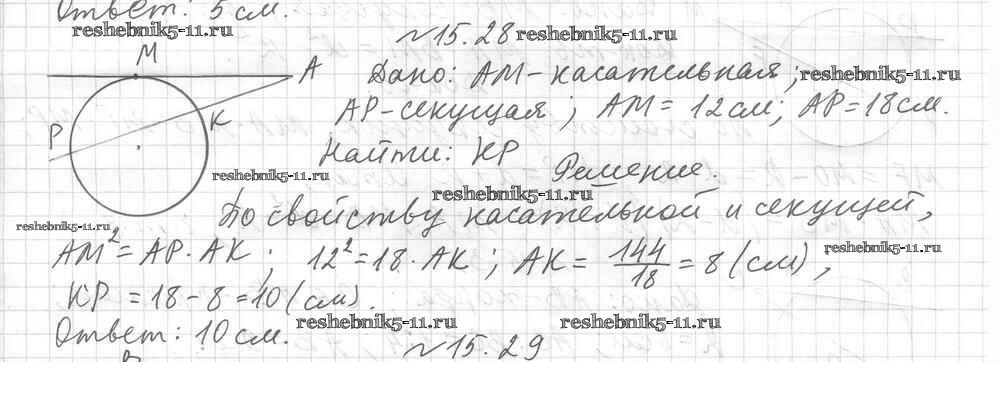 Ответ: 5 см.
reshebnik5-11.ru
№15.28 reshebnik5-11.ru
М
А
Дано: АМ - касательная; reshebnik5-11.ru
АР - секущая; АМ = 12 см; АР = 18 см.
К
Р
Найти: КР
Решение.
reshebnik5-11.ru
reshebnik5-11.ru
По свойству касательной и секущей,
reshebnik5-11.ru
АМ² = АР · АК; 12² = 18 · АК; АК = 144/18 = 8 (см),
reshebnik5-11.ru
КР = 18 - 8 = 10 (см).
Ответ: 10 см.
reshebnik5-11.ru reshebnik5-11.ru
№15.29